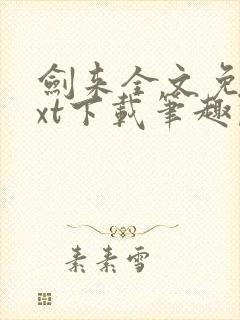 劍来全文免
xt下載筆趣
素素雪